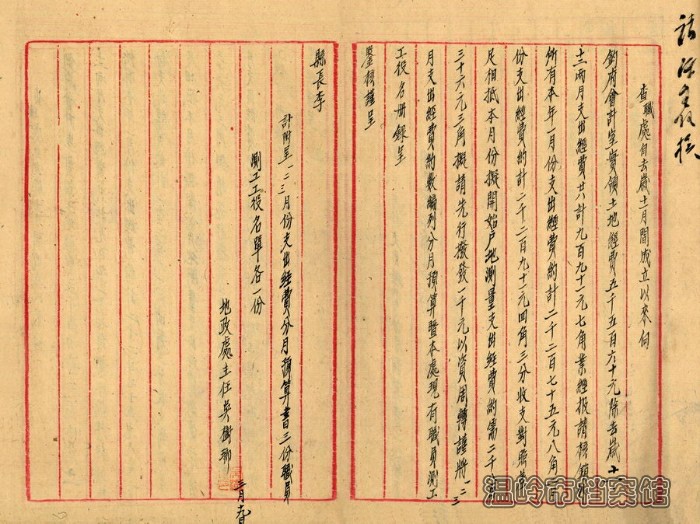 查職處自去歲十一月間成立以來向
鈞府會計室實領土地經費五千五百六十元除去歲十一
十二兩月支出經費共計九百九十一元七角業經報請核銷外
所有本年一月份支出經費約計二千二百七十五元八角二
份支出經費約計二千二百九十一元四角三分收支對照
足相抵本月份擬開始戶地測量支出經費約需二千
三十六元三角擬請先行撥發一千元以資周轉謹將一二三
月支出經費約數編列分月預算暨本處現有職員測工
工役名冊錄呈
鑒核謹呈
縣長李
計附呈一二三月份支出經費分月預算書三份職員
測工工役名單各一份
地政處主任吳
三月
温岭市档案馆